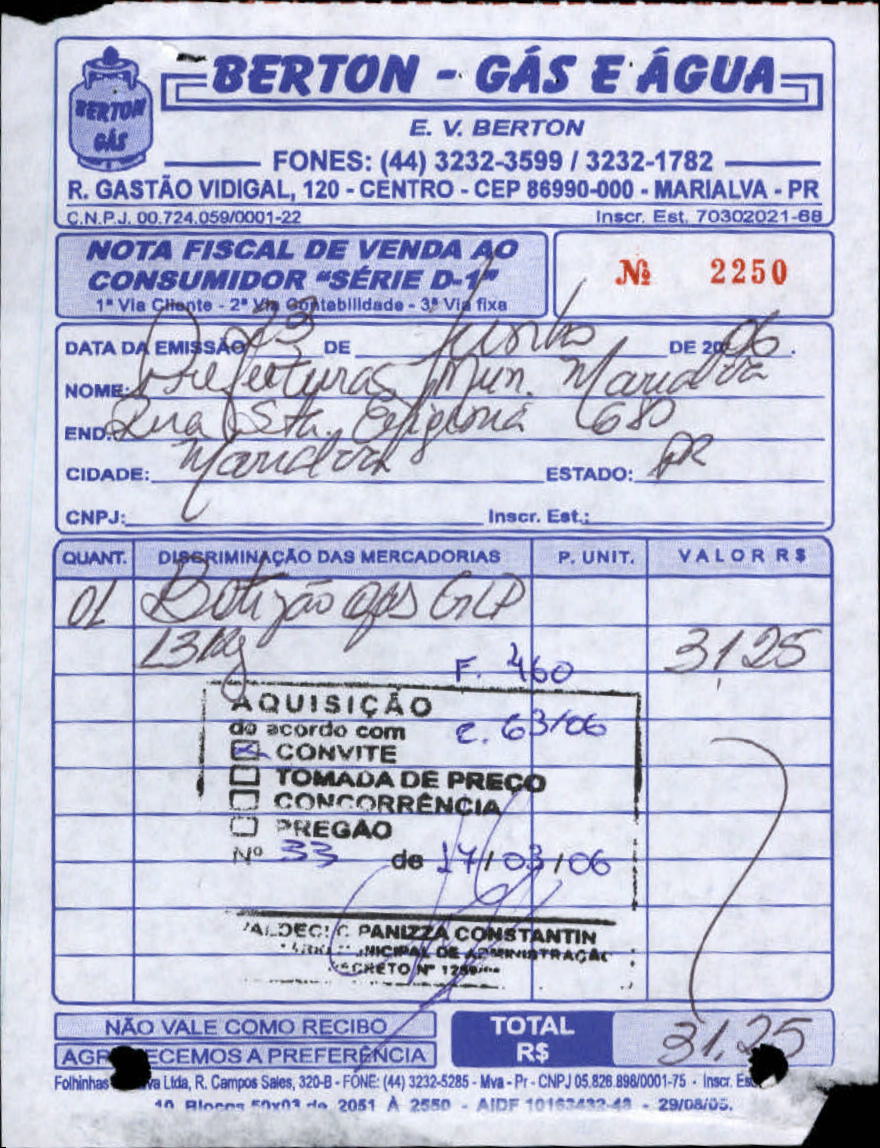 BERTON GÁS
BERTON - GÁS E ÁGUA
E. V. BERTON
FONES: (44) 3232-3599 / 3232-1782
R. GASTÃO VIDIGAL, 120 - CENTRO - CEP 86990-000 - MARIALVA - PR
C.N.P.J. 00.724.059/0001-22 Inscr. Est. 70302021-68
NOTA FISCAL DE VENDA AO
CONSUMIDOR "SÉRIE D-1"
1ª Via Cliente - 2ª Via Contabilidade - 3ª Via fixa
Nº 2250
DATA DA EMISSÃO 23 DE Junho DE 2006.
NOME: Prefeituras Mun. Marialva
END. Rua Sta. Efigenia 680
CIDADE: Marialva ESTADO: PR
CNPJ: Inscr. Est.:
QUANT. DISCRIMINAÇÃO DAS MERCADORIAS P. UNIT. VALOR R$
01 Botijão gas GLP
13 Kg 31,25
F. 460
AQUISIÇÃO
de acordo com C. 63/06
CONVITE
TOMADA DE PREÇO
CONCORRÊNCIA
PREGÃO
Nº 33 de 17/03/06
PANIZZA CONSTANTIN
MUNICIPAL DE ADMINISTRAÇÃO
DECRETO Nº
NÃO VALE COMO RECIBO
AGRADECEMOS A PREFERÊNCIA
TOTAL R$ 31,25
Folhinhas Ltda, R. Campos Sales, 320-B - FONE: (44) 3232-5285 - Mva - Pr - CNPJ 05.826.898/0001-75 - Inscr.
10 Blocos 50x03 de 2051 À 2550 - AIDF 10163432-48 - 29/08/05.